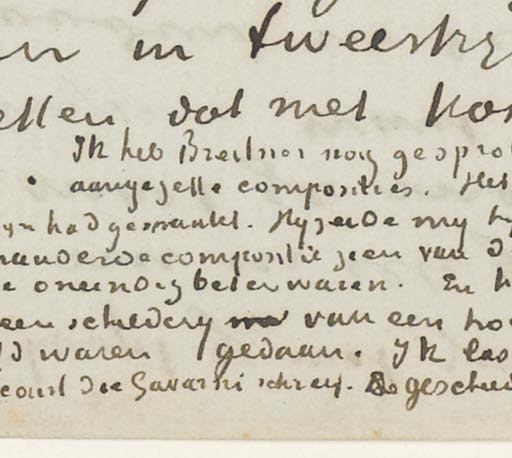 in tweestry
etten dat met kon
Ik heb Breitner nog gespro
aangezette composities. Het
yn had gemaakt. Hy zeide my
randerde compositie zeen van d
e oneindig beter waren. En h
een schildery van een ho
d waren gedaan. Ik las
court die Gavarni schreef. geschied